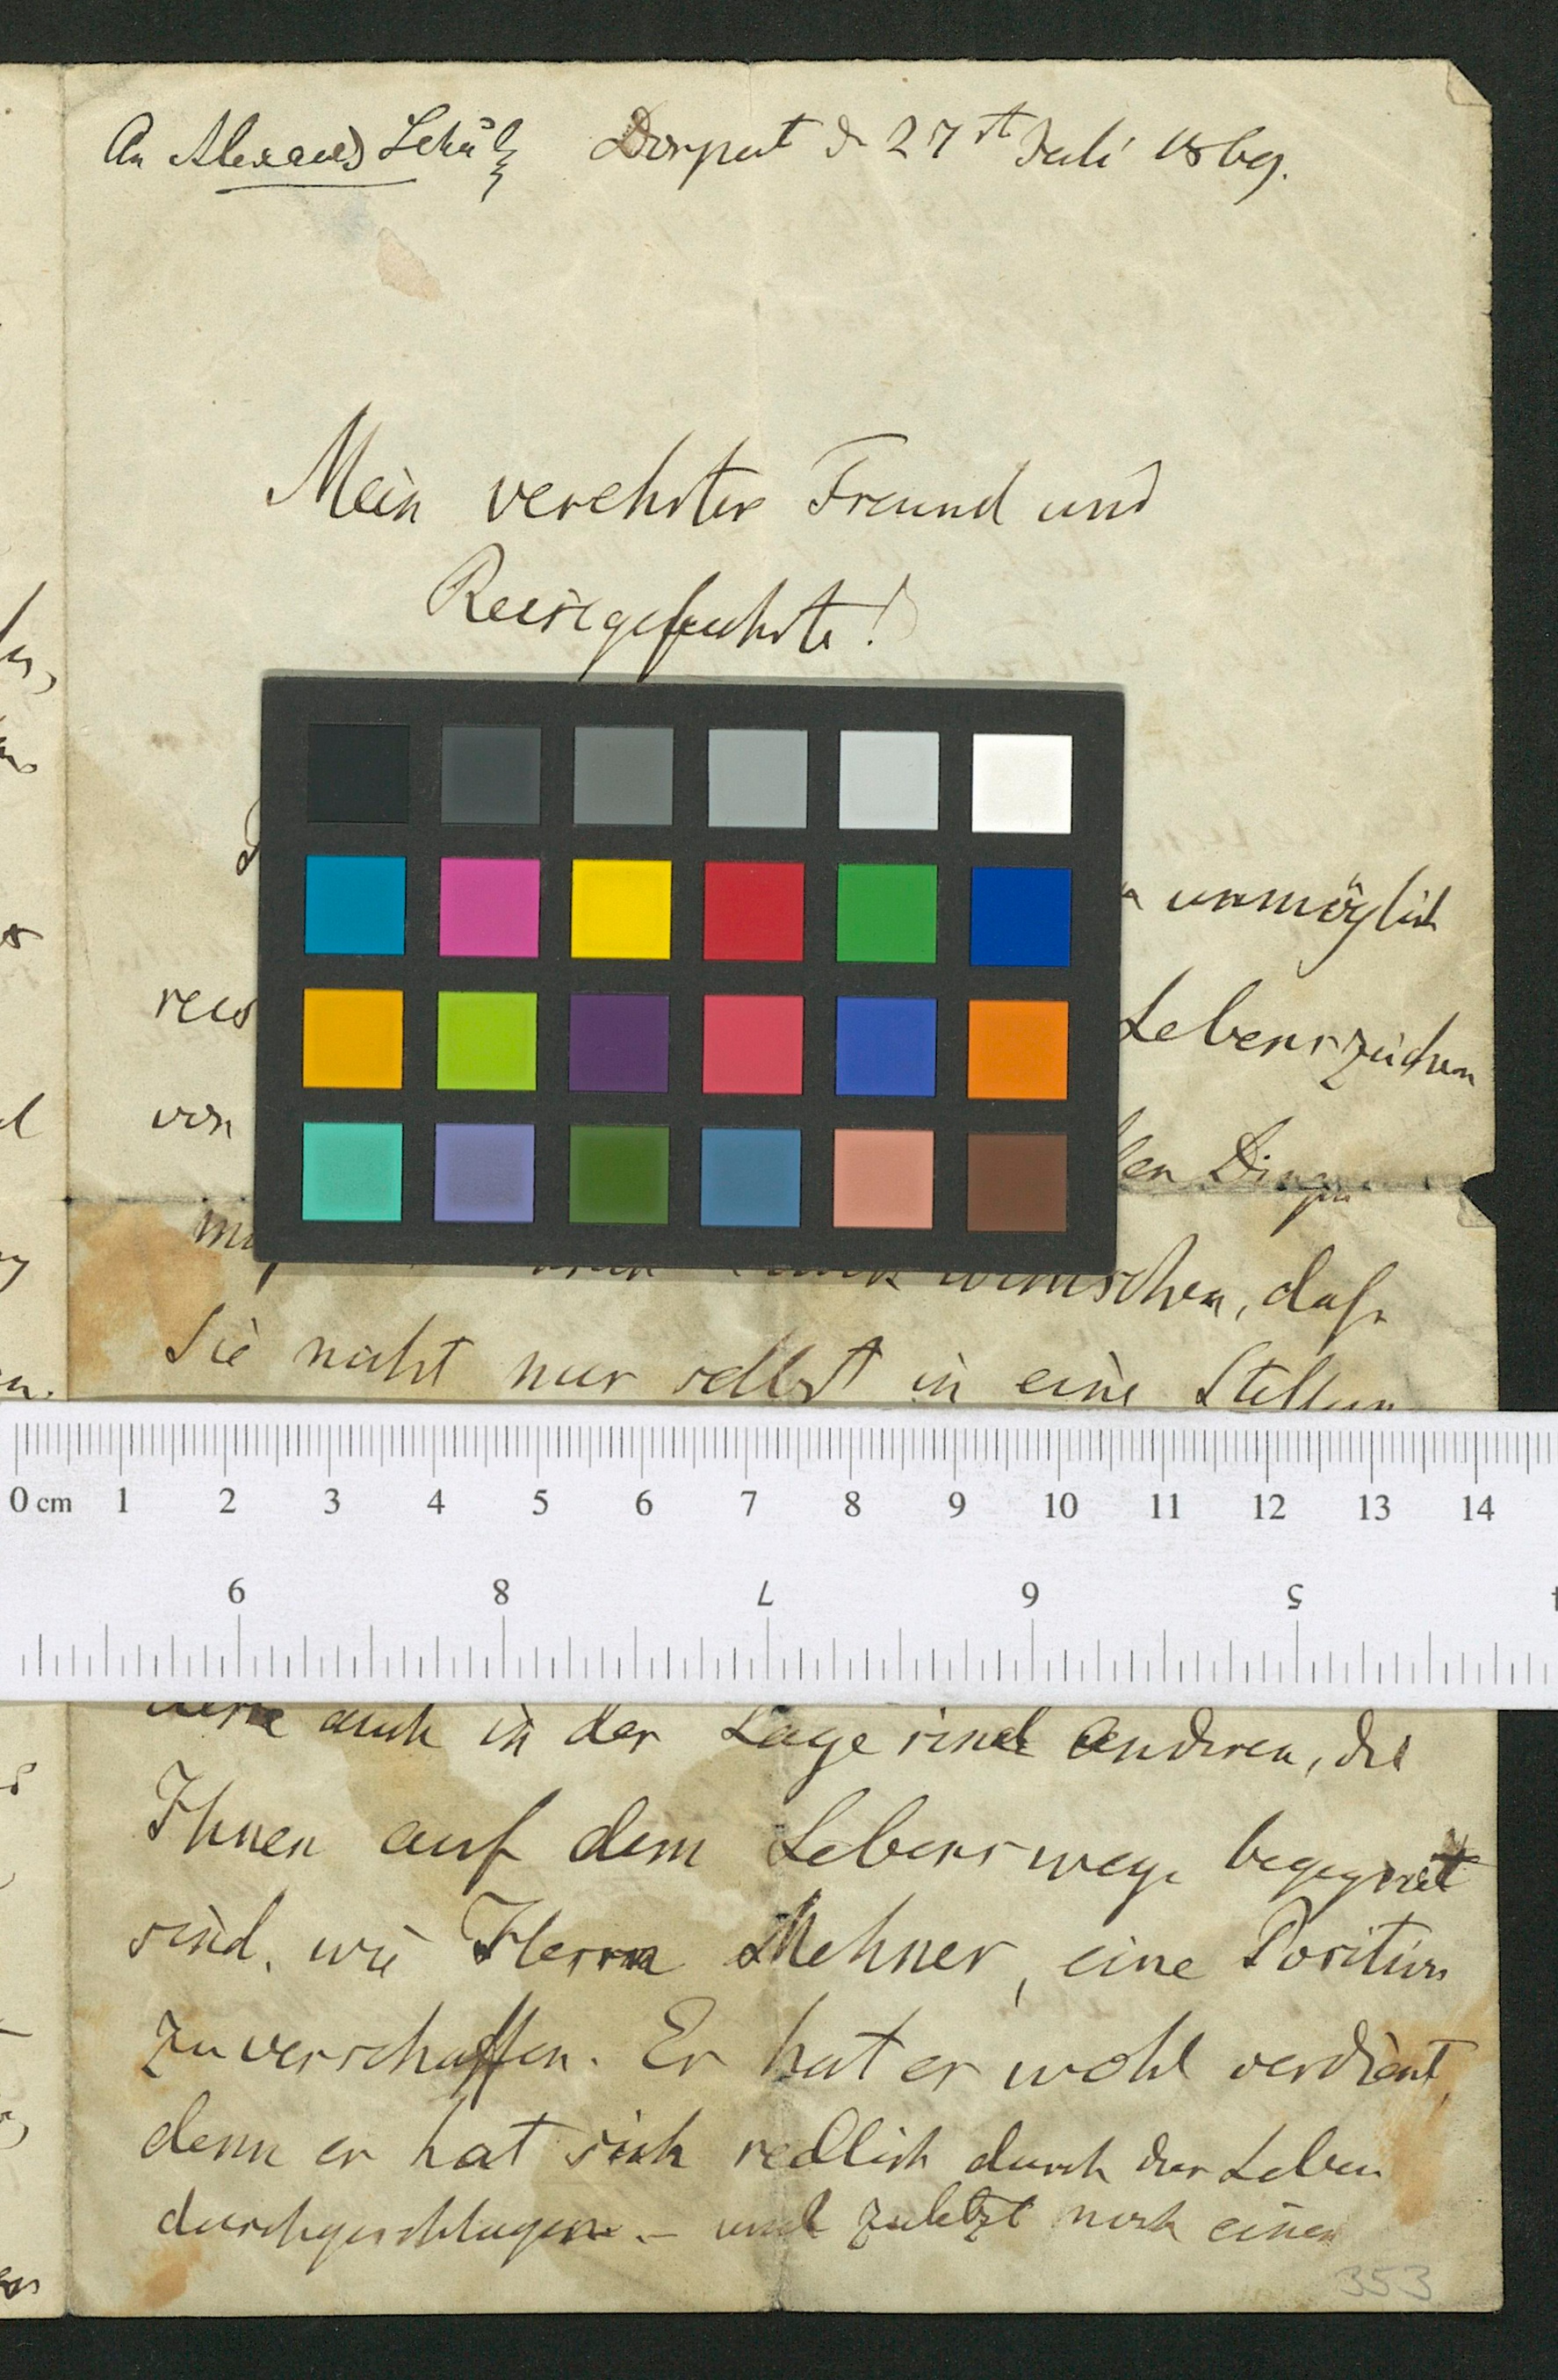 An Alexand Schultz Dorpat d 27st Juli 1869.
Mein verehrter Freund und
Reisegefährte!
unmöglich
Lebenszeichen
von
len Dingen
wünschen, daß
Sie nicht nur selbst in eine
0 cm 1 2 3 4 5 6 7 8 9 10 11 12 13 14
9 8 7 6 5
auch in der Lage sind anderen, die
Ihnen auf dem Lebenswege begegnet
sind, wie Herrn Mehner, eine Position
zu verschaffen. Er hat es wohl verdient,
denn er hat sich redlich durch das Leben
durchgeschlagen. – und zuletzt noch einen
353